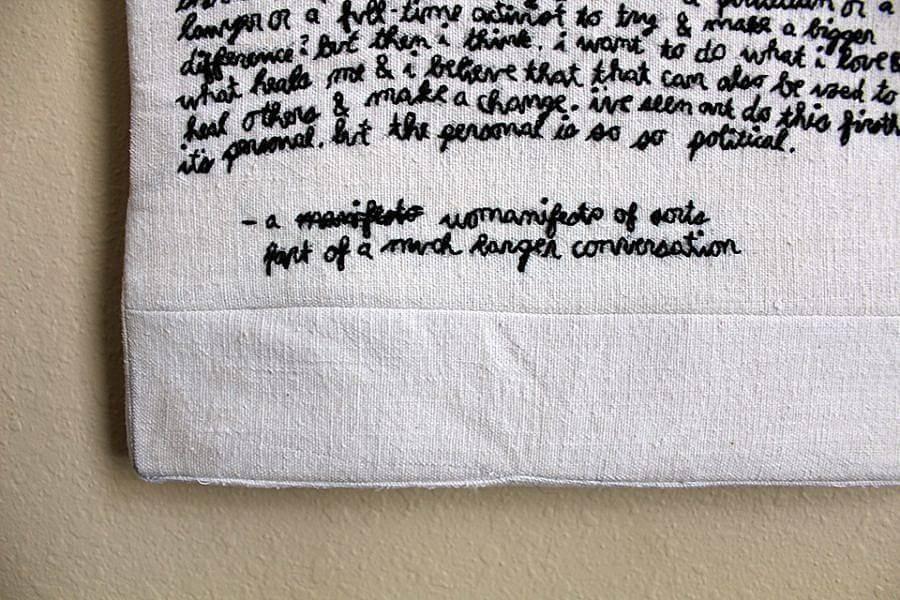 a politician or a
lawyer or a full-time activist to try & make a bigger
difference? but then i think. i want to do what i love &
what heals me & i believe that that can also be used to
heal others & make a change. i've seen art do this firsth
it's personal. but the personal is so so political.
- a manifesto womanifesto of sorts
part of a much larger conversation